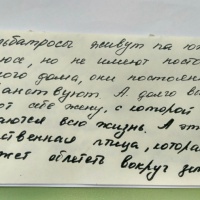 льбатросы живут на юж
юсе, но не имеют посто
ого дома, они постоянн
ранствуют. А долго вы
ют себе жену, с которой
аются всю жизнь. А эт
ственная птица, котора
жет облететь вокруг зем